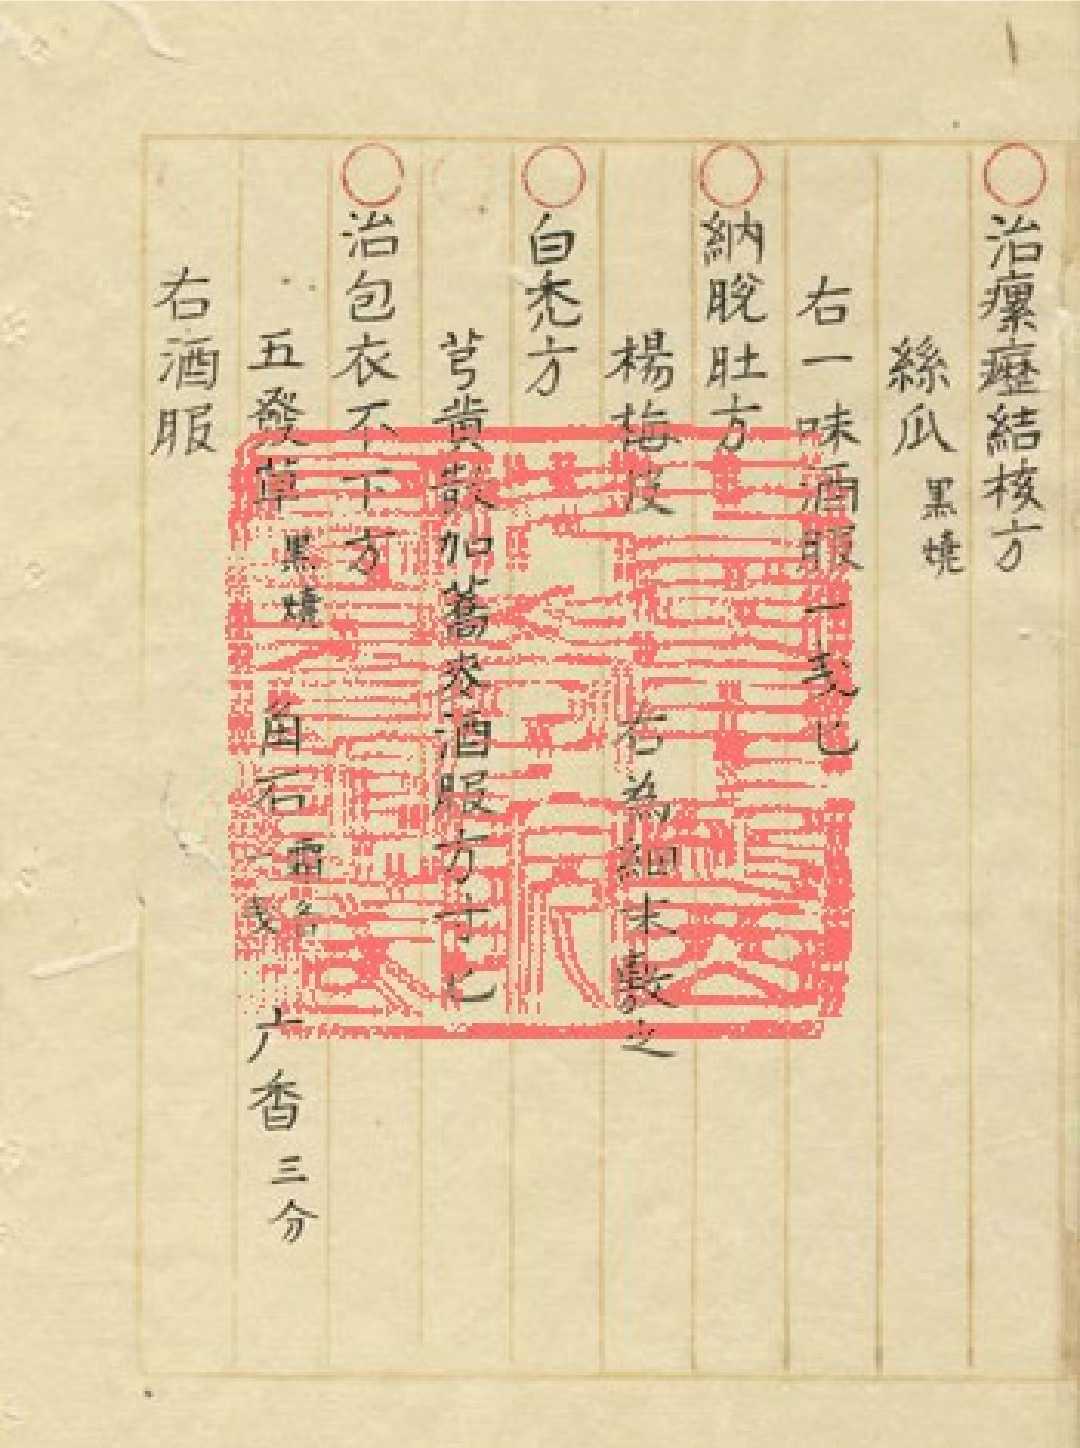 ○治瘰癧結核方
絲瓜 黒焼
右一味酒服一戔匕
○納脫肚方
楊梅皮 右為細末敷之
○白禿方
芎黄散加蕎麦酒服方寸匕
○治包衣不下方
五發草 黒焼 角石 霜各一戔 广香 三分
右酒服